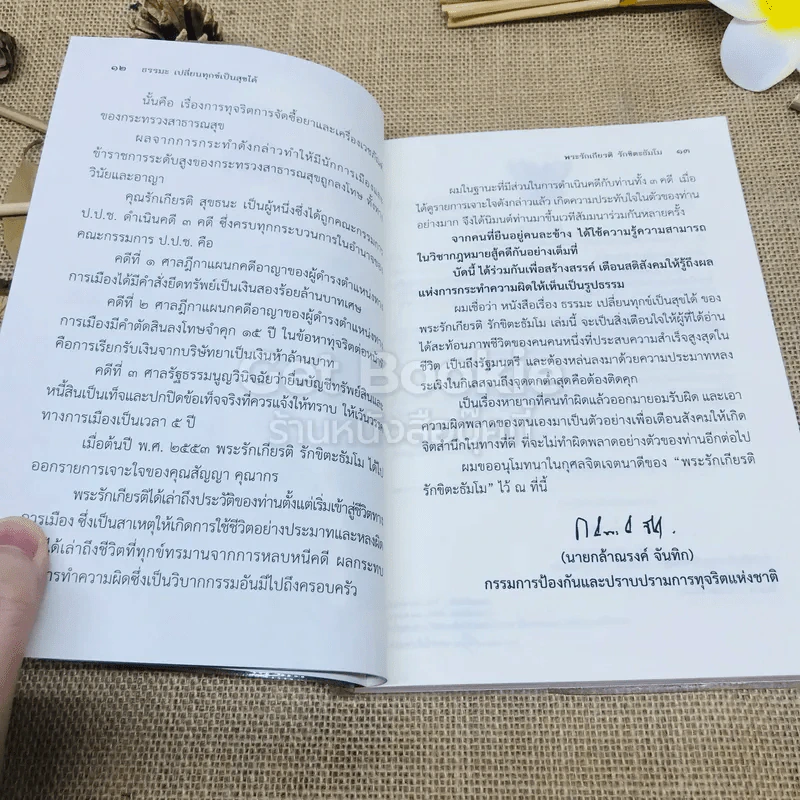 ๑๒ ธรรมะ เปลี่ยนทุกข์เป็นสุขได้
นั้นคือ เรื่องการทุจริตการจัดซื้อยาและเครื่องเวชภัณฑ์
ของกระทรวงสาธารณสุข
ผลจากการกระทำดังกล่าวทำให้มีนักการเมืองและ
ข้าราชการระดับสูงของกระทรวงสาธารณสุขถูกลงโทษ ทั้งทาง
วินัยและอาญา
คุณรักเกียรติ สุขธนะ เป็นผู้หนึ่งซึ่งได้ถูกคณะกรรมการ
ป.ป.ช. ดำเนินคดี ๓ คดี ซึ่งครบทุกกระบวนการในอำนาจของ
คณะกรรมการ ป.ป.ช. คือ
คดีที่ ๑ ศาลฎีกาแผนกคดีอาญาของผู้ดำรงตำแหน่งทาง
การเมืองได้มีคำสั่งยึดทรัพย์เป็นเงินสองร้อยล้านบาทเศษ
คดีที่ ๒ ศาลฎีกาแผนกคดีอาญาของผู้ดำรงตำแหน่งทาง
การเมืองมีคำตัดสินลงโทษจำคุก ๑๕ ปี ในข้อหาทุจริตต่อหน้าที่
คือการเรียกรับเงินจากบริษัทยาเป็นเงินห้าล้านบาท
คดีที่ ๓ ศาลรัฐธรรมนูญวินิจฉัยว่ายื่นบัญชีทรัพย์สินและ
หนี้สินเป็นเท็จและปกปิดข้อเท็จจริงที่ควรแจ้งให้ทราบ ให้เว้นวรรค
ทางการเมืองเป็นเวลา ๕ ปี
เมื่อต้นปี พ.ศ. ๒๕๕๓ พระรักเกียรติ รักขิตะธัมโม ได้ไป
ออกรายการเจาะใจของคุณสัญญา คุณากร
พระรักเกียรติได้เล่าถึงประวัติของท่านตั้งแต่เริ่มเข้าสู่ชีวิตทาง
การเมือง ซึ่งเป็นสาเหตุให้เกิดการใช้ชีวิตอย่างประมาทและหลงผิด
ได้เล่าถึงชีวิตที่ทุกข์ทรมานจากการหลบหนีคดี ผลกระทบ
การทำความผิดซึ่งเป็นวิบากกรรมอันมีไปถึงครอบครัว
พระรักเกียรติ รักขิตะธัมโม ๑๓
ผมในฐานะที่มีส่วนในการดำเนินคดีกับท่านทั้ง ๓ คดี เมื่อ
ได้ดูรายการเจาะใจดังกล่าวแล้ว เกิดความประทับใจในตัวของท่าน
อย่างมาก จึงได้นิมนต์ท่านมาขึ้นเวทีสัมมนาร่วมกันหลายครั้ง
จากคนที่ยืนอยู่คนละข้าง ได้ใช้ความรู้ความสามารถ
ในวิชากฎหมายสู้คดีกันอย่างเต็มที่
บัดนี้ ได้ร่วมกันเพื่อสร้างสรรค์ เตือนสติสังคมให้รู้ถึงผล
แห่งการกระทำความผิดให้เห็นเป็นรูปธรรม
ผมเชื่อว่า หนังสือเรื่อง ธรรมะ เปลี่ยนทุกข์เป็นสุขได้ ของ
พระรักเกียรติ รักขิตะธัมโม เล่มนี้ จะเป็นสิ่งเตือนใจให้ผู้ที่ได้อ่าน
ได้สะท้อนภาพชีวิตของคนคนหนึ่งที่ประสบความสำเร็จสูงสุดใน
ชีวิต เป็นถึงรัฐมนตรี และต้องหล่นลงมาด้วยความประมาทหลง
ระเริงในกิเลสจนถึงจุดตกต่ำสุดคือต้องติดคุก
เป็นเรื่องหายากที่คนทำผิดแล้วออกมายอมรับผิด และเอา
ความผิดพลาดของตนเองมาเป็นตัวอย่างเพื่อเตือนสังคมให้เกิด
จิตสำนึกในทางที่ดี ที่จะไม่ทำผิดพลาดอย่างตัวของท่านอีกต่อไป
ผมขออนุโมทนาในกุศลจิตเจตนาดีของ “พระรักเกียรติ
รักขิตะธัมโม” ไว้ ณ ที่นี้
(นายกล้าณรงค์ จันทิก)
กรรมการป้องกันและปราบปรามการทุจริตแห่งชาติ